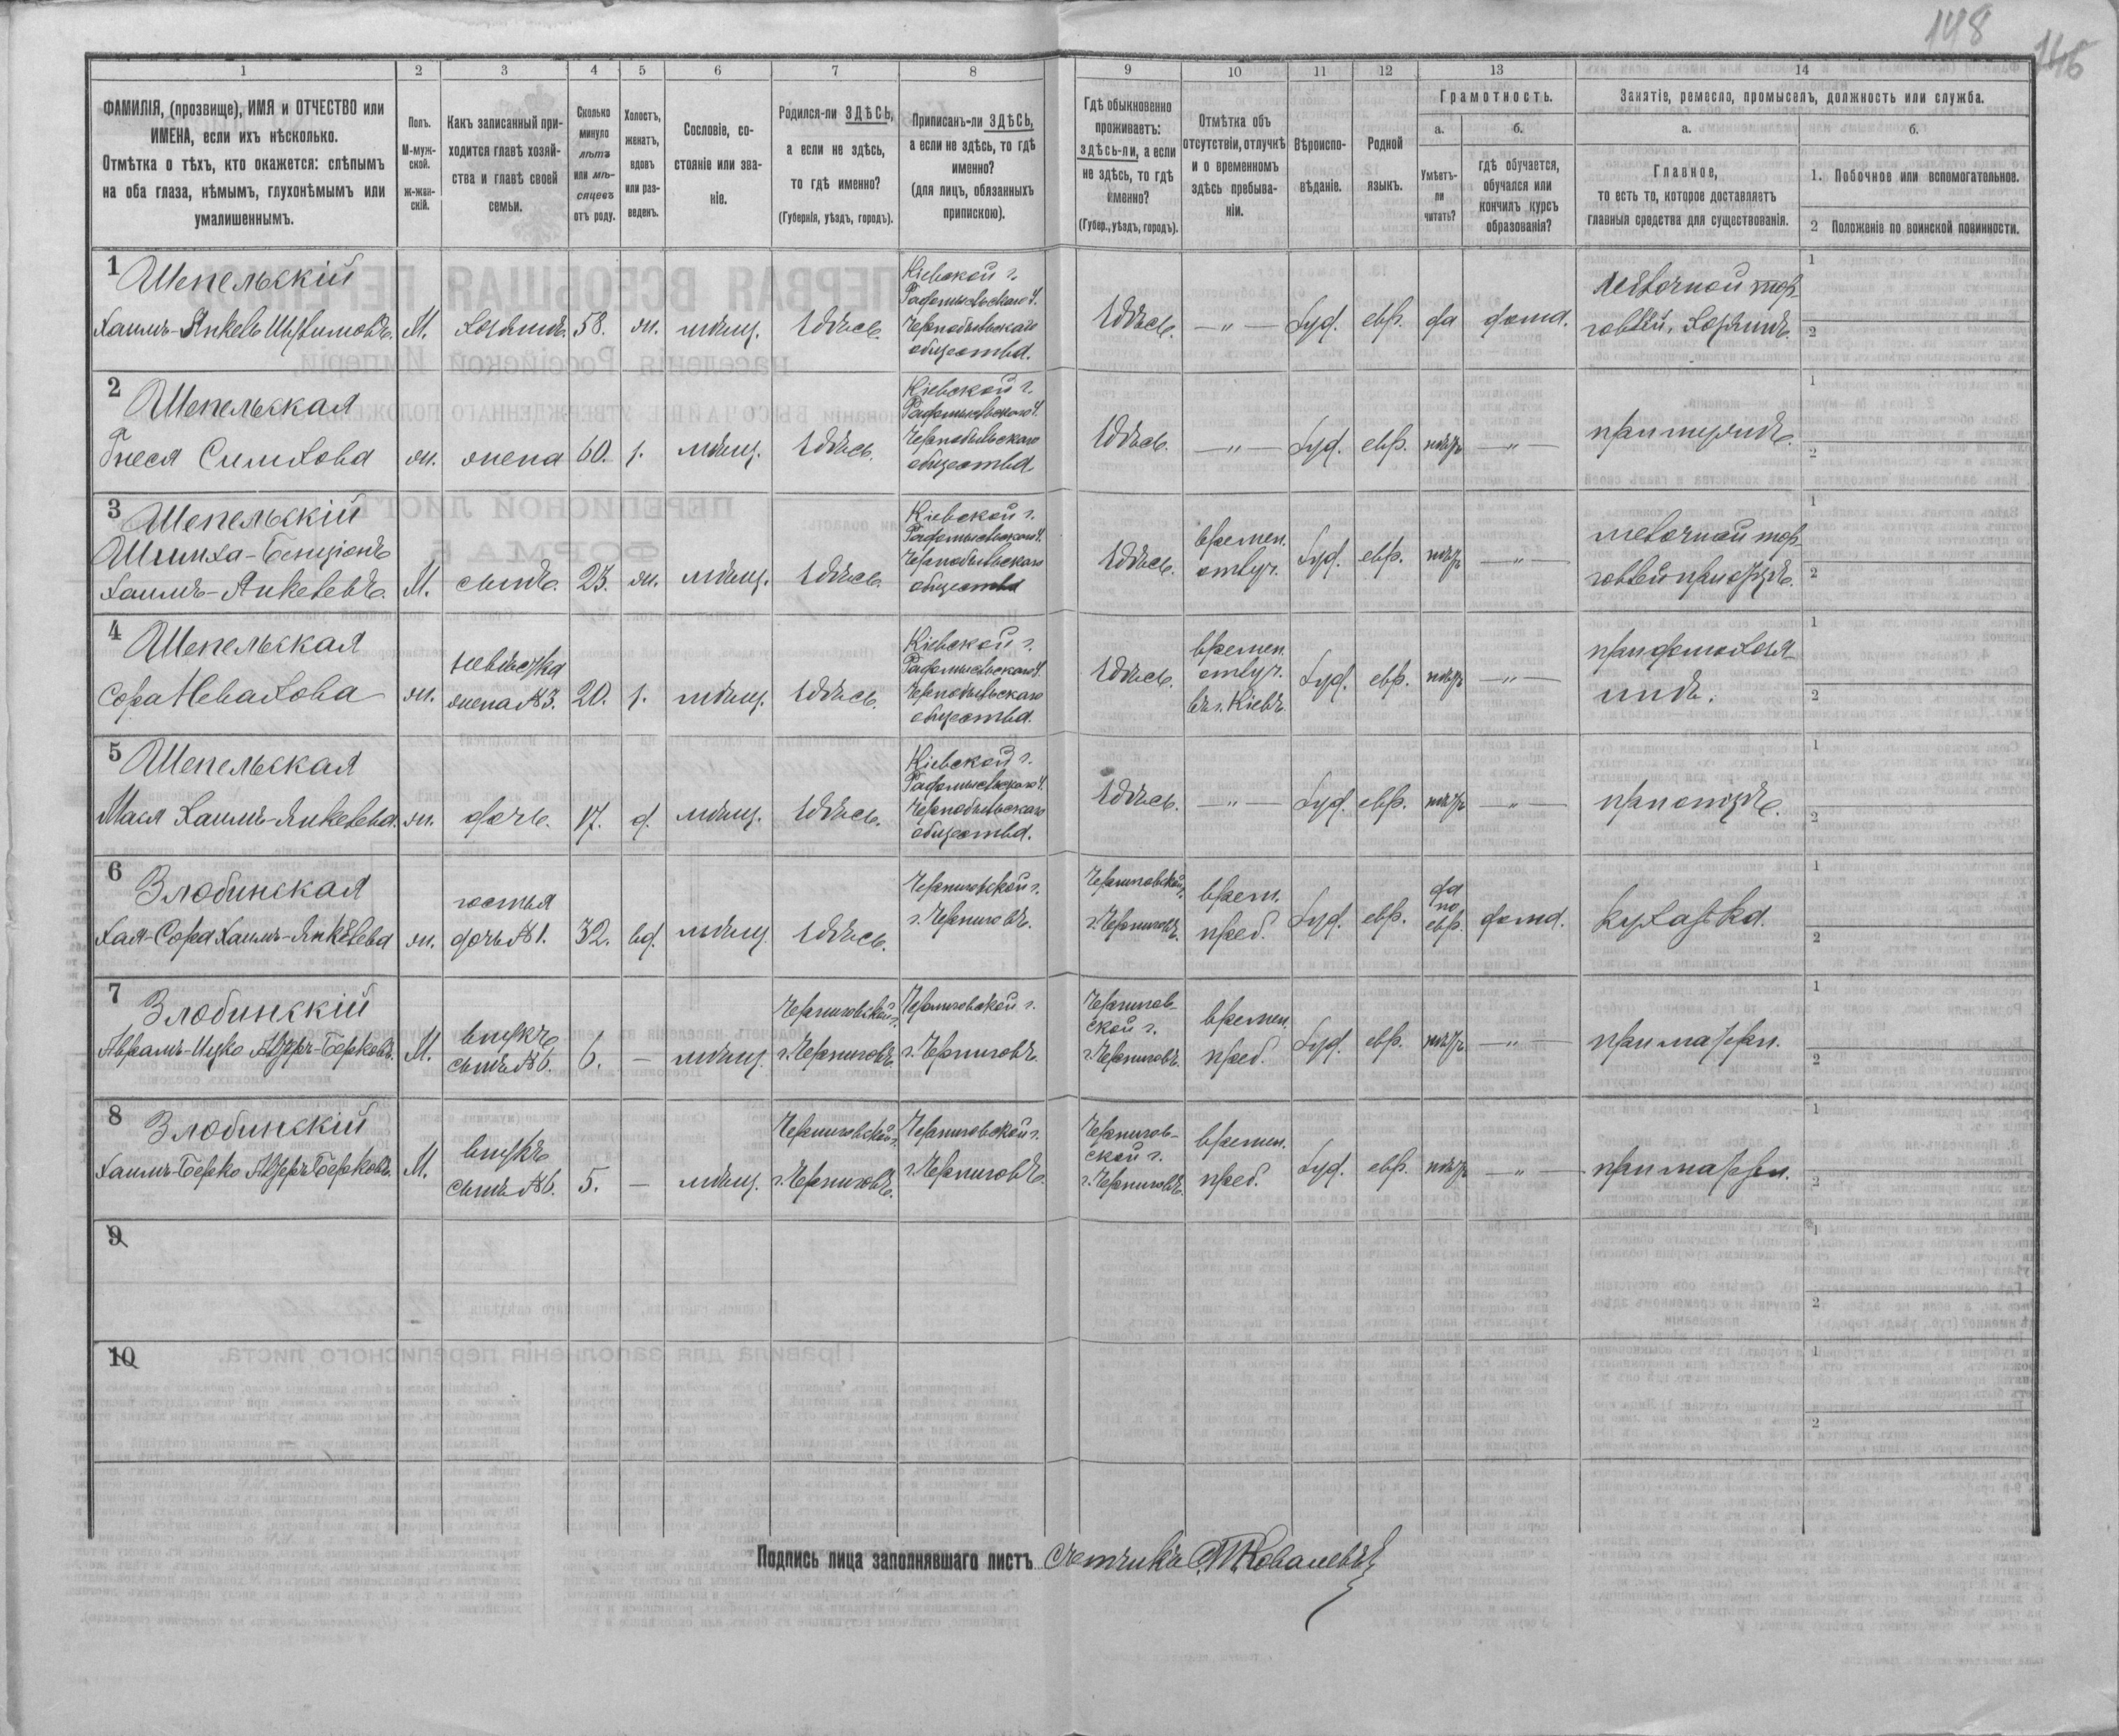 148
146
1
2
3
4
5
6
7
8
9
10
11
12
13
14
ФАМИЛІЯ, (прозвище), ИМЯ и ОТЧЕСТВО или
ИМЕНА, если ихъ нѣсколько.
Отмѣтка о тѣхъ, кто окажется: слѣпымъ
на оба глаза, нѣмымъ, глухонѣмымъ или
умалишеннымъ.
Полъ.
М-муж-
ской.
ж-жен-
скій.
Какъ записанный при-
ходится главѣ хозяй-
ства и главѣ своей
семьи.
Сколько
минуло
лѣтъ
или мѣ-
сяцевъ
отъ роду.
Холостъ,
женатъ,
вдовъ
или раз-
веденъ.
Сословіе, со-
стояніе или зва-
ніе.
Родился-ли ЗДѢСЬ,
а если не здѣсь,
то гдѣ именно?
(Губернія, уѣздъ, городъ).
Приписанъ-ли ЗДѢСЬ,
а если не здѣсь, то гдѣ
именно?
(для лицъ, обязанныхъ
припискою).
Гдѣ обыкновенно
проживаетъ:
здѣсь-ли, а если
не здѣсь, то гдѣ
именно?
(Губер., уѣздъ, городъ).
Отмѣтка объ
отсутствіи, отлучкѣ
и о временномъ
здѣсь пребыва-
ніи.
Вѣроиспо-
вѣданіе.
Родной
языкъ.
Грамотность.
а.
Умѣетъ-
ли
читать?
б.
гдѣ обучается,
обучался или
кончилъ курсъ
образованія?
Занятіе, ремесло, промыселъ, должность или служба.
а.
Главное,
то есть то, которое доставляетъ
главныя средства для существованія.
б.
1. Побочное или вспомогательное.
2 Положеніе по воинской повинности.
1
Шепельскій
Хаимъ-Янкель
М.
хозяинъ.
58.
ж.
мѣщ.
здѣсь.
Кіевской г.
Радомысльскаго у.
Чернобыльскаго
общества.
здѣсь.
— „ —
Іуд.
евр.
да
дома.
мелочной тор-
говлей, хозяинъ.
1
2
2
Шепельская
Гнеся Симхова
ж.
жена
60.
з.
мѣщ.
здѣсь.
Кіевской г.
Радомысльскаго у.
Чернобыльскаго
общества.
здѣсь.
— „ —
Іуд.
евр.
нѣтъ
— „ —
при мужѣ.
1
2
3
Шепельскій
Шимха-Бенціонъ
Хаимъ-Янкелевъ.
М.
сынъ.
23.
ж.
мѣщ.
здѣсь.
Кіевской г.
Радомысльскаго у.
Чернобыльскаго
общества
здѣсь.
времен.
отлуч.
Іуд.
евр.
нѣтъ
— „ —
мелочной тор-
говлей при отцѣ.
1
2
4
Шепельская
Сора Невахова
ж.
невѣстка
жена №3.
20.
з.
мѣщ.
здѣсь.
Кіевской г.
Радомысльскаго у.
Чернобыльскаго
общества.
здѣсь.
времен.
отлуч.
въ г. Кіевъ
Іуд.
евр.
нѣтъ
— „ —
при домохозя-
инѣ.
1
2
5
Шепельская
Мася Хаимъ-Янкелева.
ж.
дочь.
17.
д.
мѣщ.
здѣсь.
Кіевской г.
Радомысльскаго у.
Чернобыльскаго
общества.
здѣсь.
— „ —
Іуд.
евр.
нѣтъ
— „ —
при отцѣ.
1
2
6
Злобинская
Хая-Сора Хаимъ-Янкелева
ж.
гостья
дочь №1.
32.
вд.
мѣщ.
здѣсь.
Черниговской г.
г. Черниговъ.
Черниговской г.
г. Черниговъ.
врем.
преб.
Іуд.
евр.
да
по
евр.
дома.
кухарка.
1
2
7
Злобинскій
Абрамъ-Ицко
М.
внукъ
сынъ №6.
6.
—
мѣщ.
Черниговской г.
г. Черниговъ.
Черниговской г.
г. Черниговъ.
Чернигов-
ской г.
г. Черниговъ.
времен.
преб.
Іуд.
евр.
нѣтъ
— „ —
при матери.
1
2
8
Злобинскій
Хаимъ-Берко
М.
внукъ
сынъ №6.
5.
—
мѣщ.
Черниговской г.
г. Черниговъ.
Черниговской г.
г. Черниговъ.
Чернигов-
ской г.
г. Черниговъ.
времен.
преб.
Іуд.
евр.
нѣтъ
— „ —
при матери.
1
2
9
1
2
10
1
2
Подпись лица заполнявшаго листъ Счетчикъ